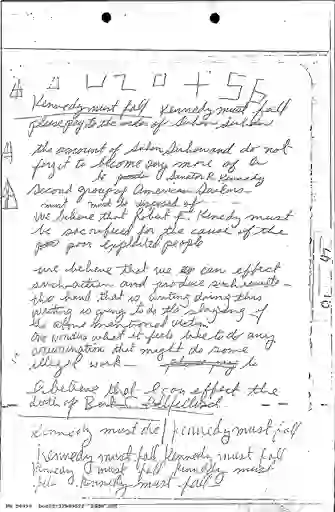 Kennedy must fall Kennedy must fall
please pay to the order of Sirhan Sirhan
the amount of Sirhan Sirhan and do not
forget to become any more of a
be Senator R. Kennedy
second group of American Sailors
must must be disposed of
We believe that Robert F. Kennedy must
be sacrificed for the cause of the
poor exploited people
we believe that we can effect
such action and produce such results -
the hand that is writing doing this
writing is going to do the slaying of
the above mentioned victim
One wonders what it feels like to do any
assassination that might do some
illegal work - please pay to
I believe that I can effect the
death of Bert C. Altfillisch
Kennedy must die Kennedy must fall
Kennedy must fall Kennedy must fall
Kennedy must fall Kennedy must
Kennedy must fall